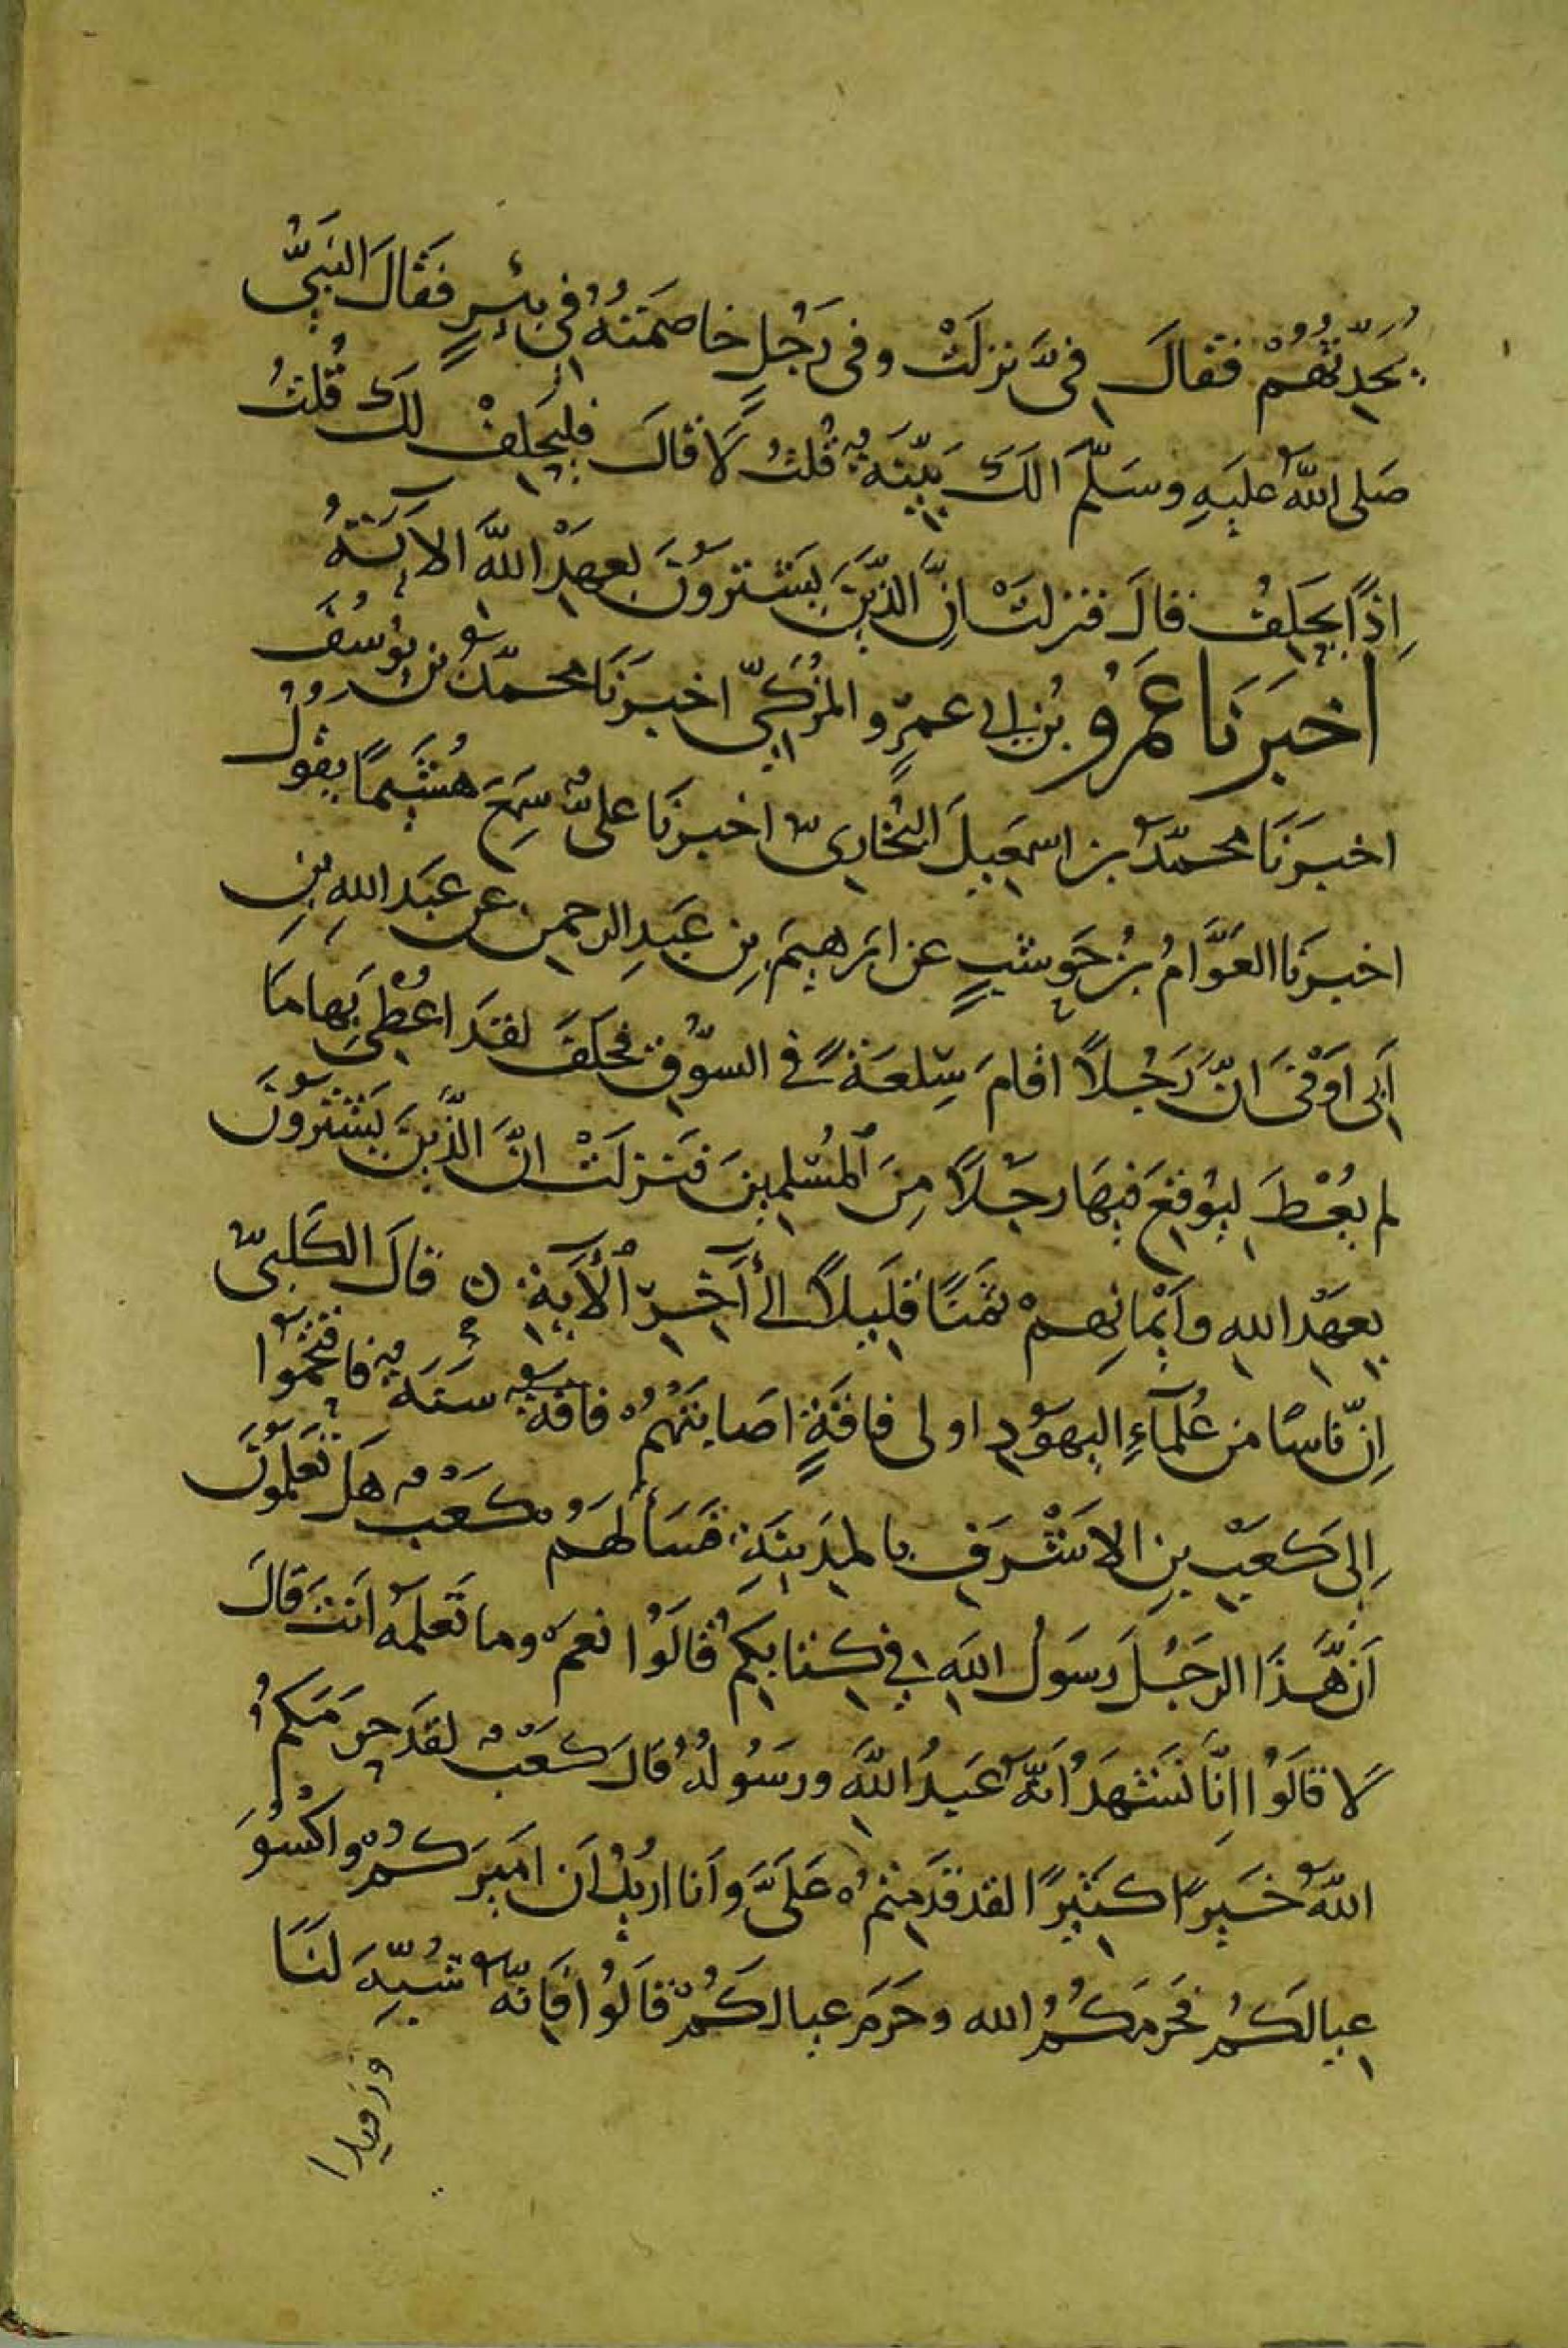 يُحَدِّثُهُمْ فقالَ فِيَّ نزلَتْ وفى رَجُلٍ خاصَمَتُهُ فى بِئرٍ فَقَالَ النَبِيُّ
صَلى اللهُ عليَهِ وسَلَّمَ الَكَ بَيِّنَةٌ قُلتُ لَا قالَ فليَحلِفْ لَكَ قُلتُ
اِذًا يَحَلِفُ قالَ فنزلتْ اِنَّ الذِّينَ يَشترُونَ بعهَدْ اللهَّ الآيَتهُ
اخبَرَنَا عَمَرُو بنُ ابي عمرٍو المُزكّيِ اخبَرَنَا محمدُّ بن يوُسُفَ
اخبَرَنَا محمدُّ بن اسمعيِلَ البُخَارِيّ اخبرنَا علىٌّ سِمَعَ هُشَيمًا يقوُلُ
اخبرَنا العَوَّامُ بنُ حَوشبٍ عن ابرَهيمَ بنِ عَبدِ الرحمن عن عبَد اللهِ بنِ
اَبى اَوْفىَ انّ رَجُلاً اقامَ سِّلعَةً في السوُّق فحَلَفَ لقدَ اعُطِىَ بِهَا مَا
لم يعُطَ ليوُقعَ فيهَا رجَلاً مِنَ المُسْلِمينَ فنَزلَتْ انَّ الَذِّينَ يَشترُونَ
بعهَدْ اللهِ وَاَيْمَانِهِمْ ثَمَنًا قليَلاً الىَ آخِرِ الْآيَةِ ن قالَ الكَلبىّ
اِنّ نَاسًا من عُلمَآءِ اليهوُدِ اولى فاقةٍ اصَابتهُمْ فاقةٌ سنَةٌ فاقتحمُوا
اِلى كَعبْ بنِ الاَشْرَفِ بالمدَينَةِ فَسَألَهُمْ كَعَبٌ هَلْ تعَلموُنَ
اَنّ هَّذَا الرجُلَ رسَوُل اللهِ في كتابكِمُ قالوُا نعمَ وما تَعلمهُ انَتَ قالَ
لَا قالوُا اِنَّا نَشهَدُ انَهُّ عَبدُ اللهَّ ورسَوُلهُ قالَ كَعَبٌ لقدَ حرَمَكمُ
اللهُ خَيرًا كثَيرًا لقد قدَمِتمُ عَلىَّ وَاَنا ارُيدُ اَن اَميَركمُ واكَسُوَ
عِيالَكمُ فَحَرمَكمُ الله وحَرَمَ عيالكمُ قالوُا فاِنهُّ شُبِّهَ لنَا